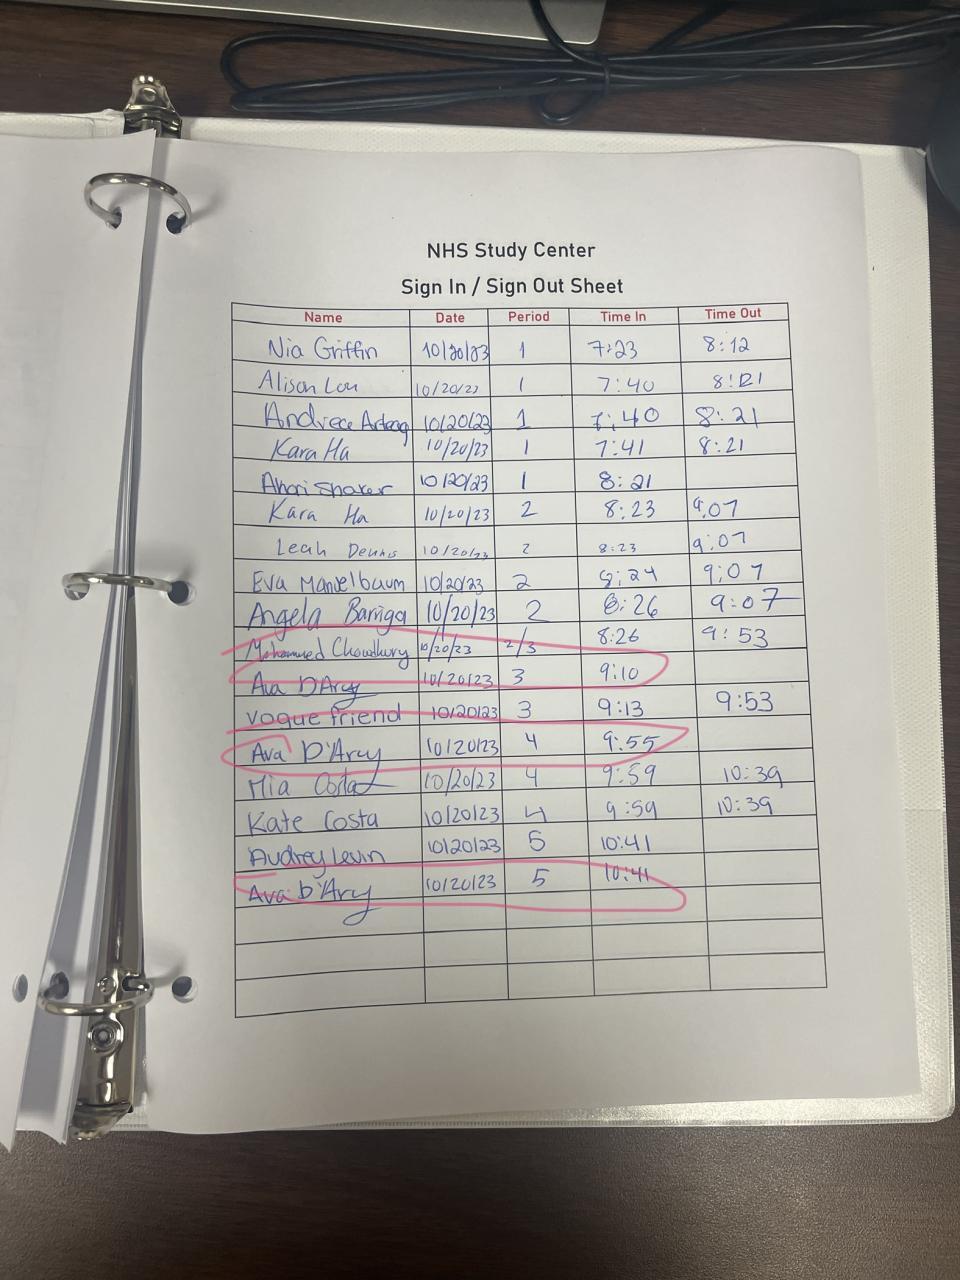 NHS Study Center
Sign In / Sign Out Sheet
Name Date Period Time In Time Out
Nia Griffin 10/20/23 1 7:23 8:12
Alison Lou 10/20/23 1 7:40 8:21
Andreea 10/20/23 1 7:40 8:21
Kara Ha 10/20/23 1 7:41 8:21
10/20/23 1 8:21
Kara Ha 10/20/23 2 8:23 9:07
Leah Dennis 10/20/23 2 8:23 9:07
Eva Mandelbaum 10/20/23 2 8:24 9:07
Angela Barriga 10/20/23 2 8:26 9:07
Mohammed Chowdhury 10/20/23 2/3 8:26 9:53
Ava D'Arcy 10/20/23 3 9:10
vogue friend 10/20/23 3 9:13 9:53
Ava D'Arcy 10/20/23 4 9:55
Mia Costa 10/20/23 4 9:59 10:39
Kate Costa 10/20/23 4 9:59 10:39
Audrey Levin 10/20/23 5 10:41
Ava D'Arcy 10/20/23 5 10:41